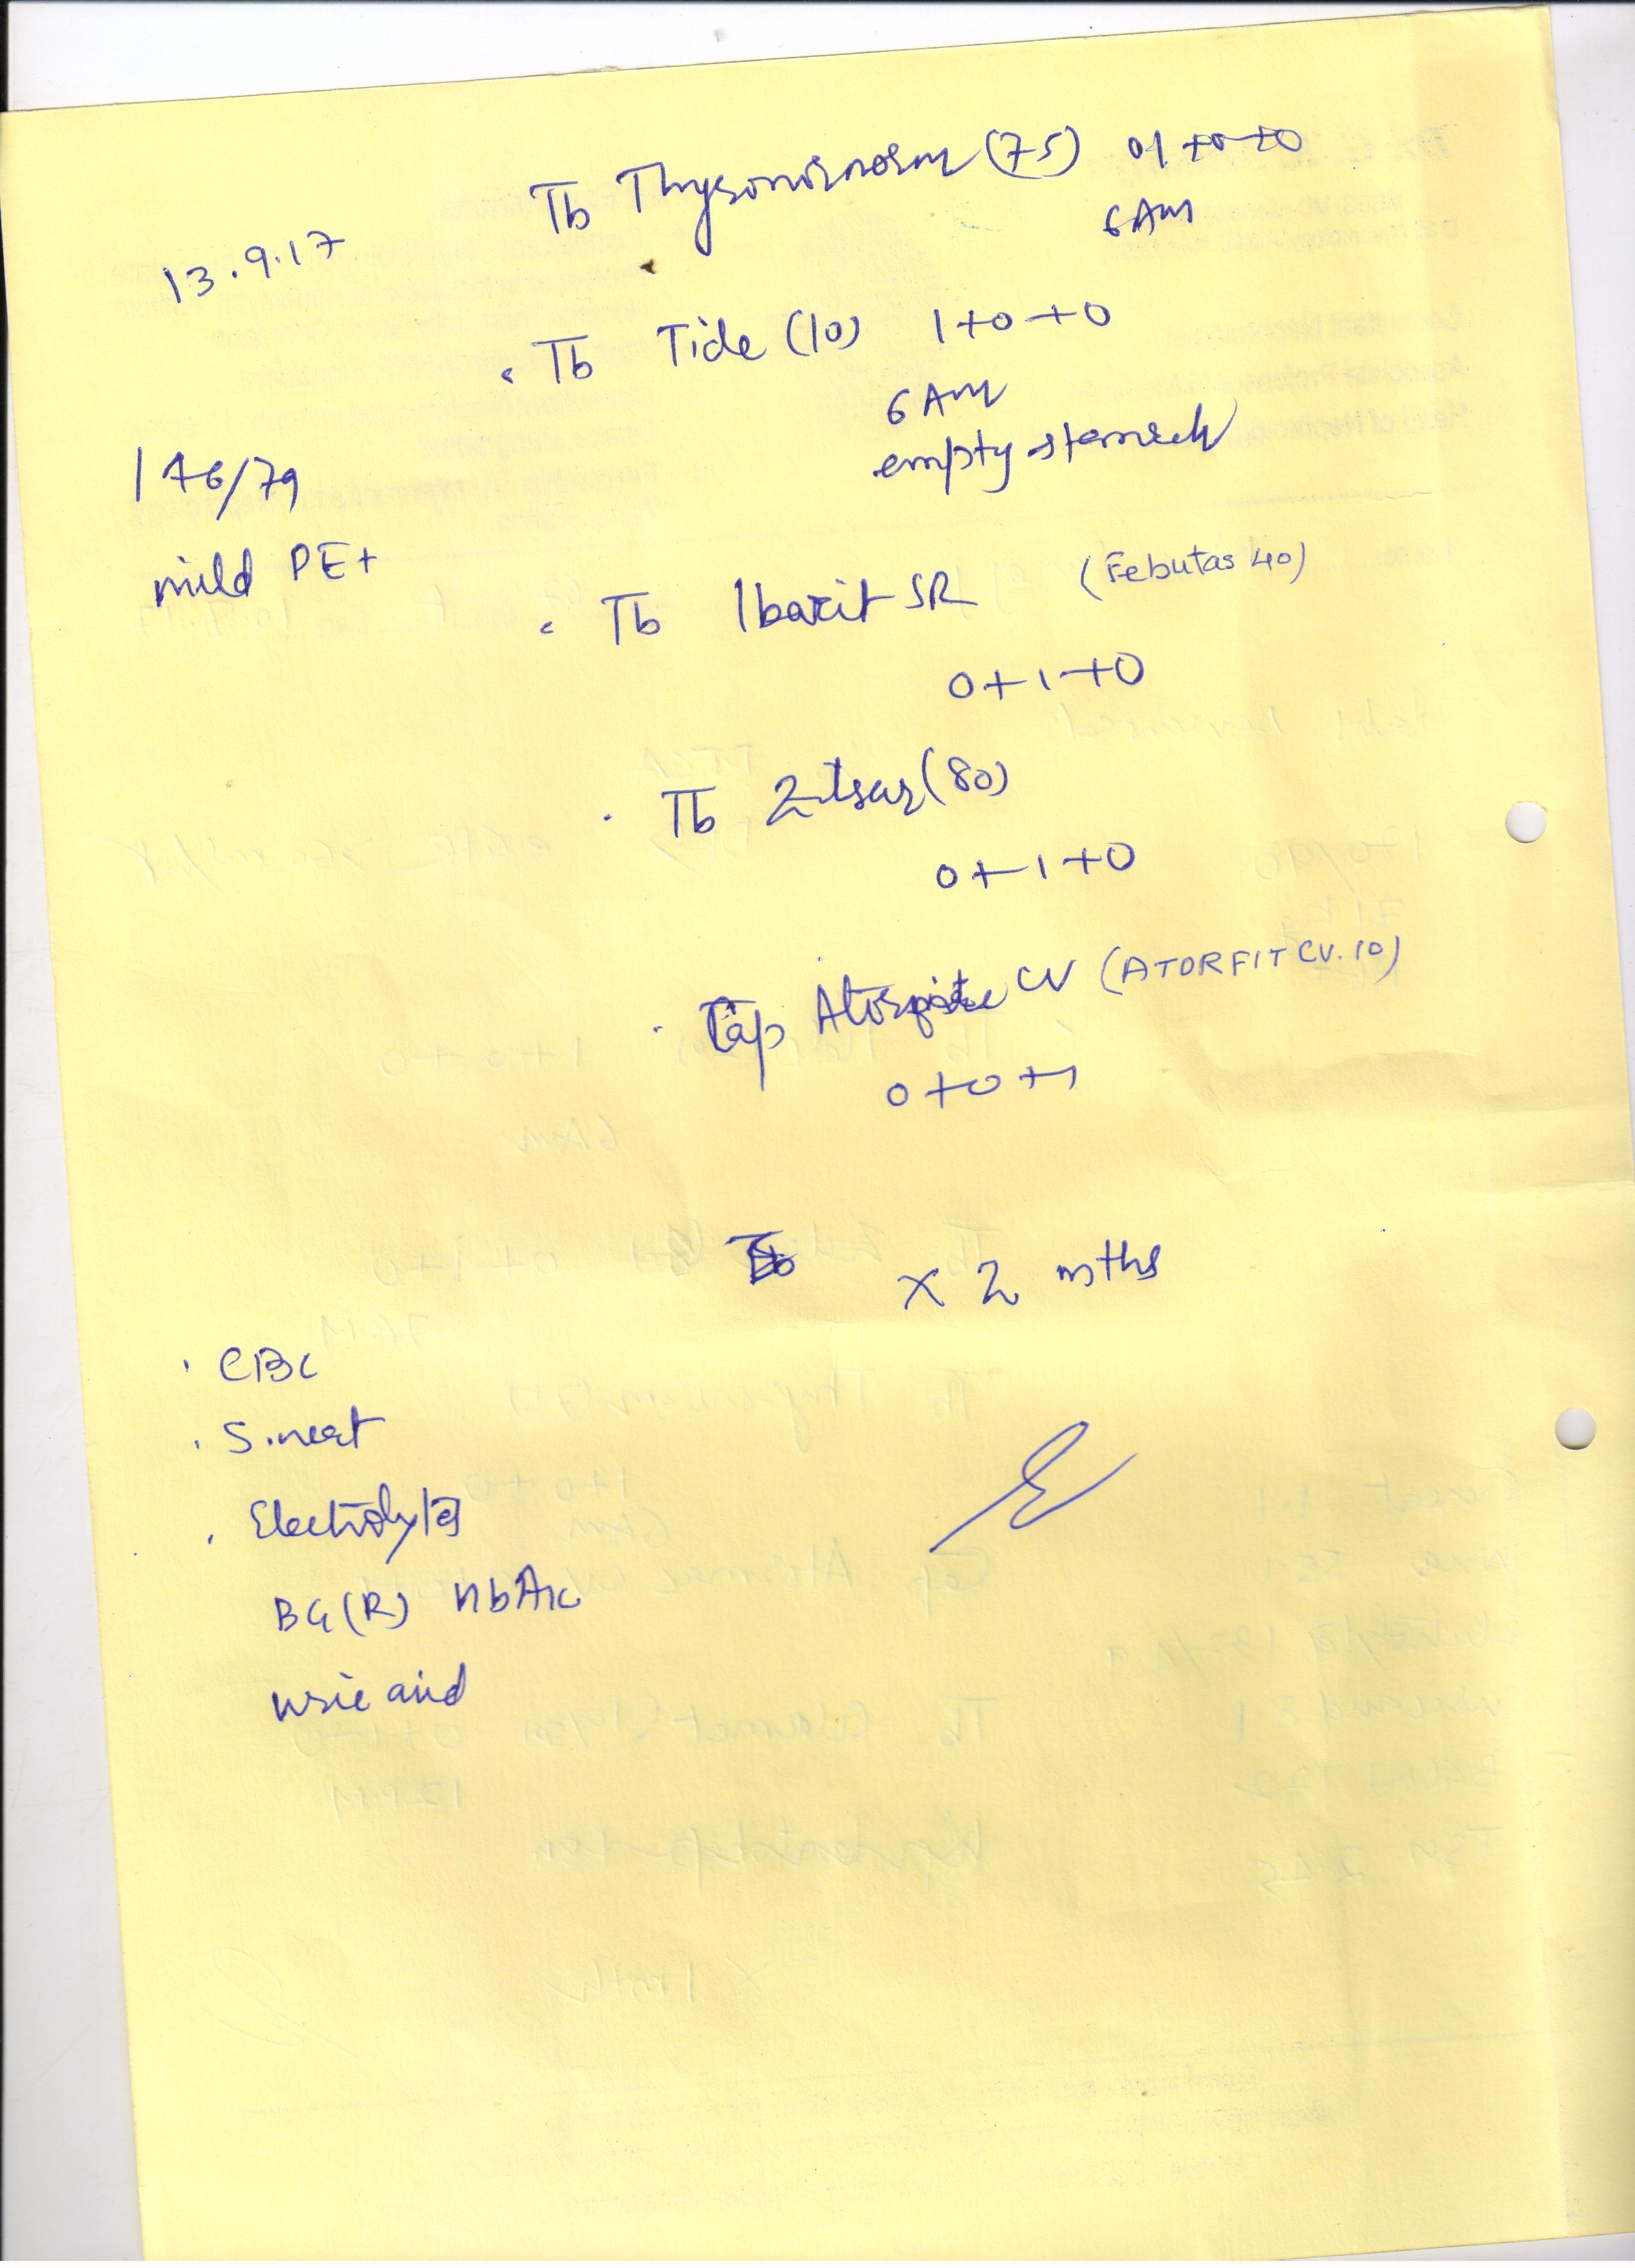 Tb Thyronorm (75) 01+0+0
6AM
13.9.17
. Tb Tide (10) 1+0+0
6AM
empty stomach
146/79
mild PE+
. Tb Ibaxit SR (Febutas 40)
0+1+0
. Tb Ztsar (80)
0+1+0
. Cap CV (ATORFIT CV. 10)
0+0+1
Tb x 2 mths
. CBC
. S.creat
. Electrolytes
BG(R) HbA1c
uric acid